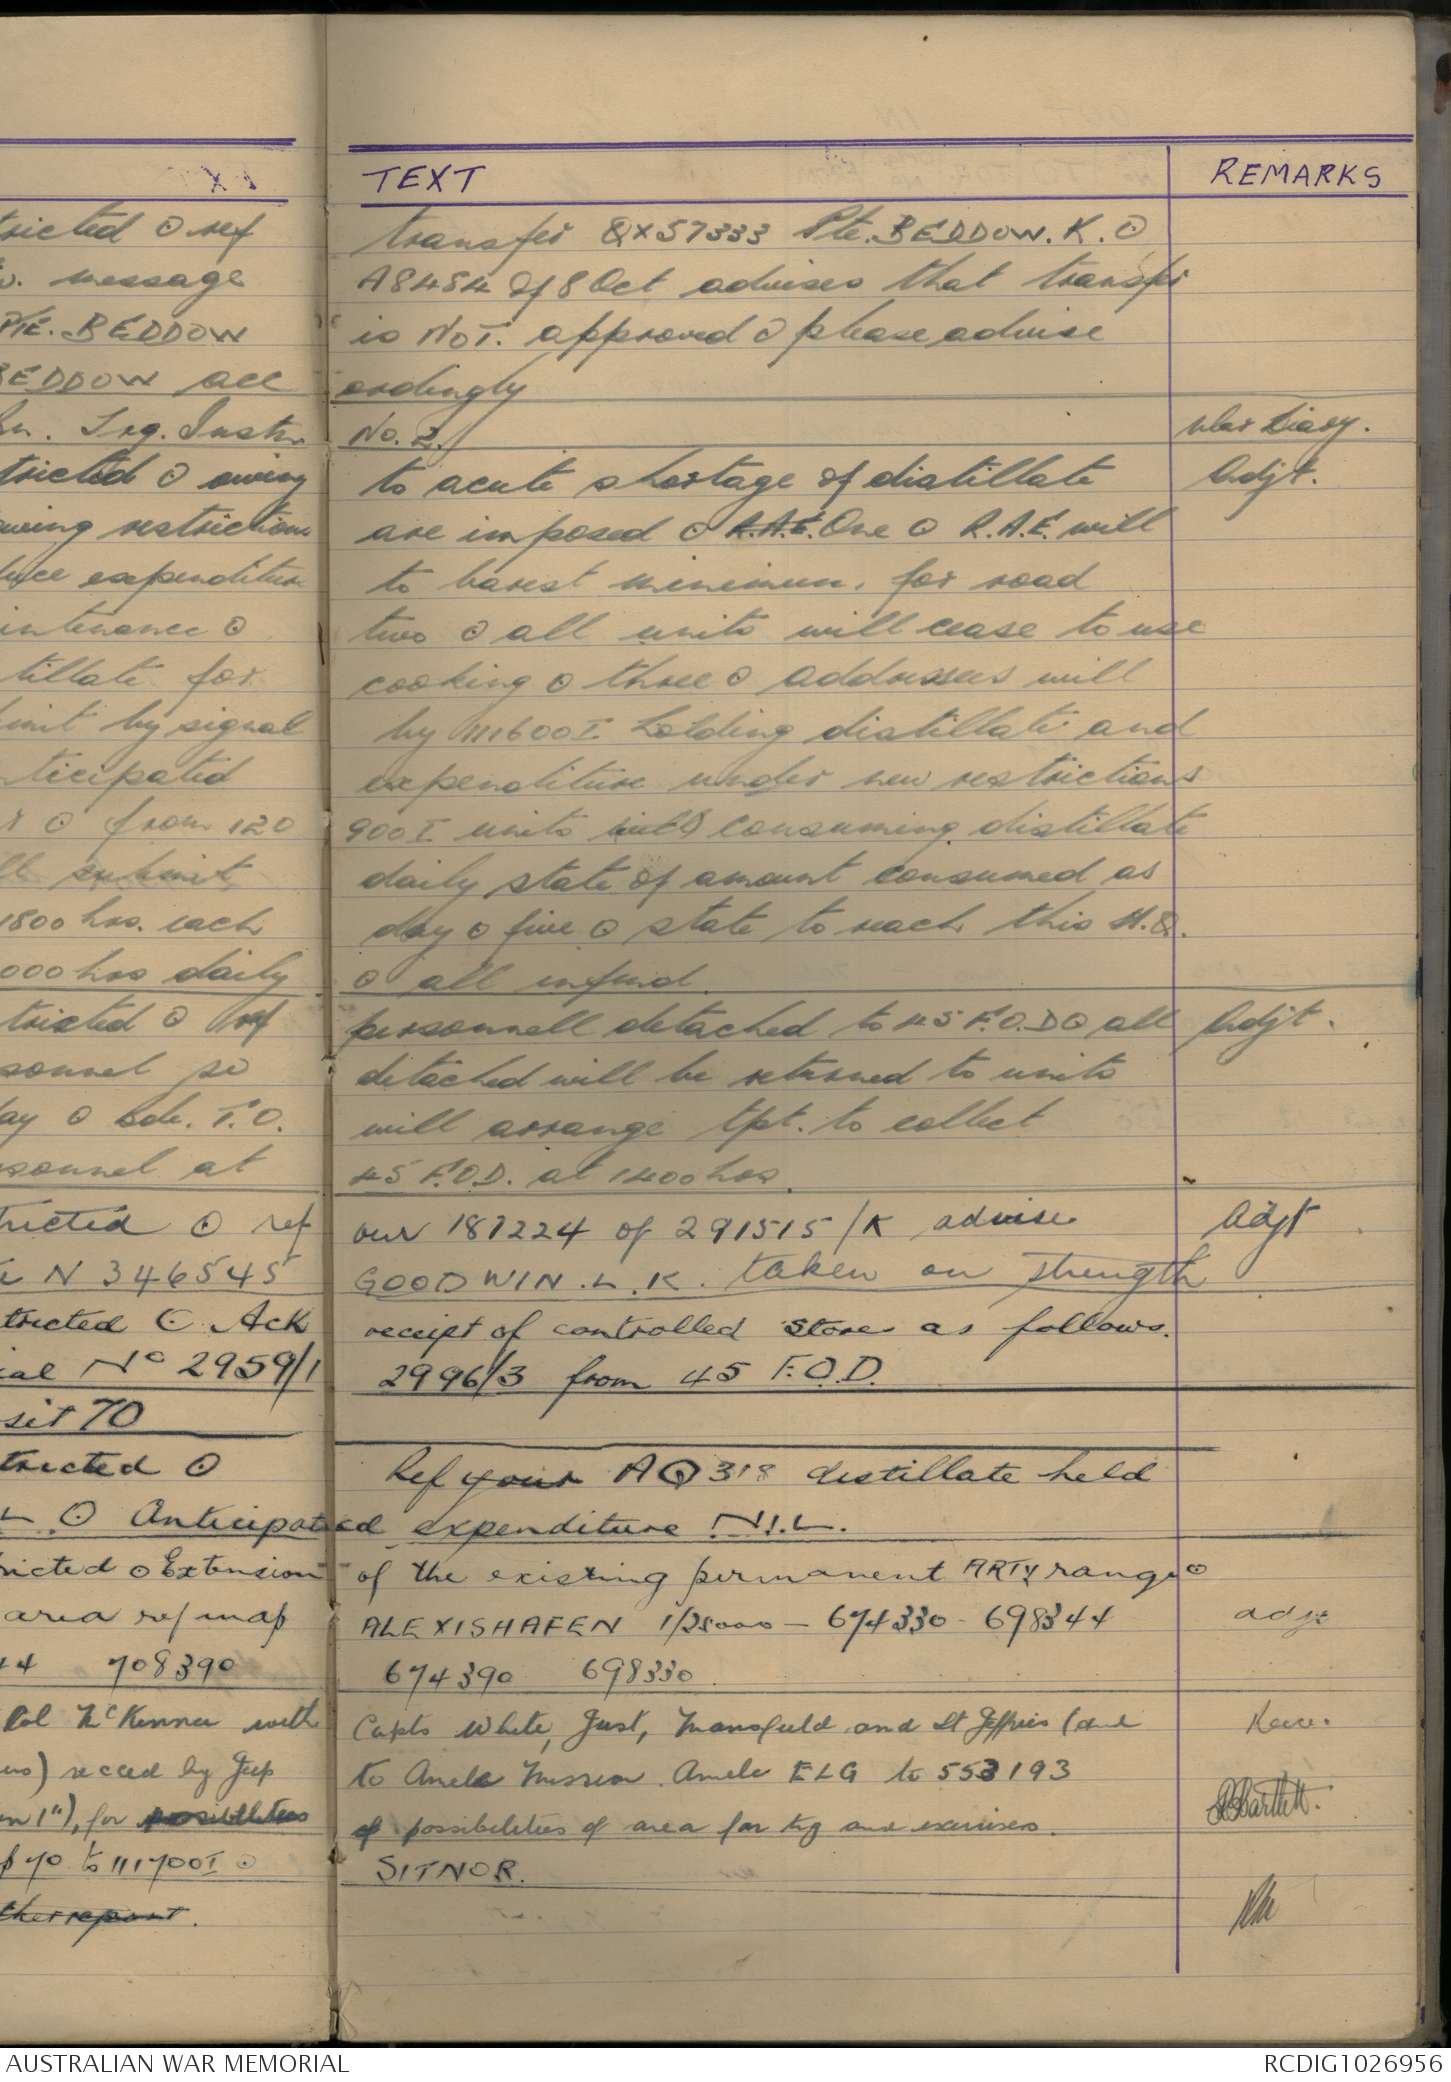 TEXT
REMARKS
tricted ⊙ ref
message
Pte. BEDDOW
BEDDOW acc
Trg. Instn
tricted ⊙ owing
owing restrictions
uce expenditure
intenance ⊙
tillate for
by signal
nticipated
r ⊙ from 120
ll submit
1800 hrs. each
000 hrs daily
tricted ⊙ ref
sonnel so
ay ⊙ Bde. T.O.
sonnel at
tricted ⊙ ref
N 346545
tricted ⊙ Ack
ial No 2959/1
sit 70
tricted ⊙
L ⊙ Anticipat
ricted ⊙ Extension
area ref map
44 708390
Col McKenna with
) recced by Jeep
n 1"), for possibilities
p 70 to 111700I ⊙
transfer QX57333 Pte. BEDDOW. K. ⊙
A8484 of 8 Oct advises that transfer
is NOT. approved ⊙ please advise
ordingly
No. 2. War Diary.
to acute shortage of distillate Adjt.
are imposed ⊙ R.A.E. One ⊙ R.A.E. will
to barest minimum. for road
two ⊙ all units will cease to use
cooking ⊙ three ⊙ addressees will
by 111600I holding distillate and
expenditure under new restrictions
900I units consuming distillate
daily state of amount consumed as
day ⊙ five ⊙ state to reach this H.Q.
⊙ all infmd.
personnell detached to 45 F.O.D ⊙ all Adjt.
detached will be returned to units
will arrange tpt. to collect
45 F.O.D. at 1400 hrs.
our 187224 of 291515/K advise Adjt
GOODWIN. L. K. taken on strength
receipt of controlled stores as follows.
2996/3 from 45 F.O.D.
Ref your AQ318 distillate held
ed expenditure N.I.L.
of the existing permanent ARTY range ⊙
ALEXISHAFEN 1/25000 - 674330 - 698344 adjt
674390 698330
Capts White, Just, Mansfield and Lt Jeffries (and
to Amele Mission. Amele ELG to 553193
of possibilities of area for trg and exercises. Bartlett.
SITNOR.
AUSTRALIAN WAR MEMORIAL
RCDIG1026956